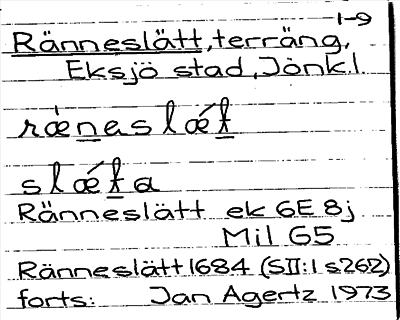 1-9
Ränneslätt, terräng,
Eksjö stad, Jönk.l.
ræ̀naslǽt
slǽta
Ränneslätt ek 6E 8j
Mil G5
Ränneslätt 1684 (SII:1 s262)
forts: Jan Agertz 1973